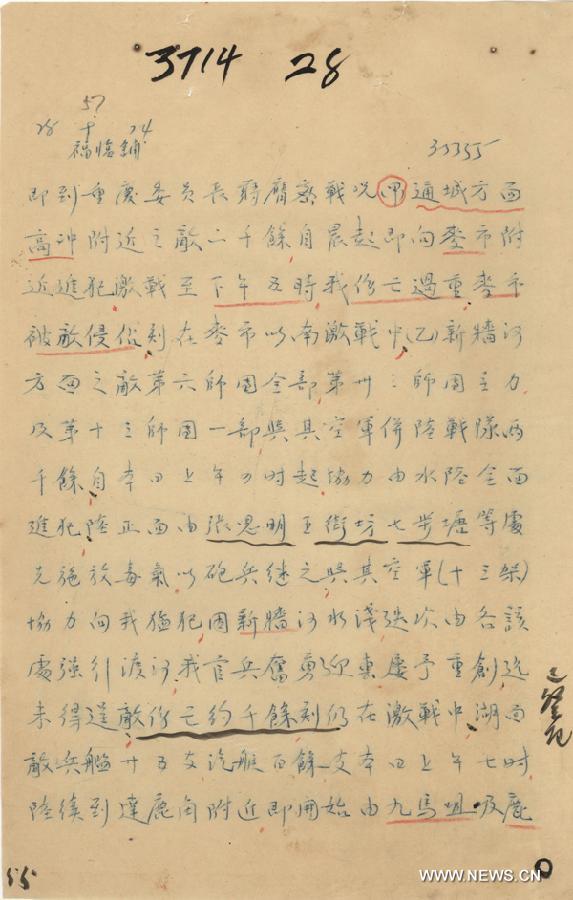 3714 28
57
28 十 24
福臨鋪 33355
即到重慶委員長蔣膺密戰況(甲)通城方面
高冲附近之敵二千餘自晨起即向麥市附
近進犯激戰至下午五時我傷亡過重麥市
被敵侵佔刻在麥市以南激戰中(乙)新墻河
方面之敵第六師團全部第卅三師團主力
及第十三師團一部與其空軍併陸戰隊兩
千餘自本日上午 时起協力由水陸全面
進犯陸正面由張思明王街坊七步塘等處
先施放毒氣以砲兵繼之與其空軍(十三架)
協力向我猛犯因新墻河水淺迭次由各該
處強引渡河我官兵奮勇迎 屢予重創迄
未得逞敵傷亡約千餘刻仍在激戰中湖面
敵兵艦廿五支汽艇百餘支本日上午七时
陸續到達鹿角附近即開始由九馬咀及鹿
55
WWW.NEWS.CN